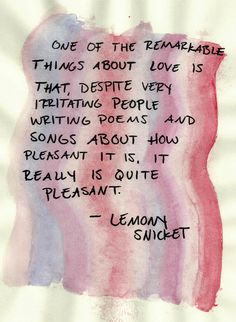 ONE OF THE REMARKABLE
THINGS ABOUT LOVE IS
THAT, DESPITE VERY
IRRITATING PEOPLE
WRITING POEMS AND
SONGS ABOUT HOW
PLEASANT IT IS, IT
REALLY IS QUITE
PLEASANT.
— LEMONY
SNICKET